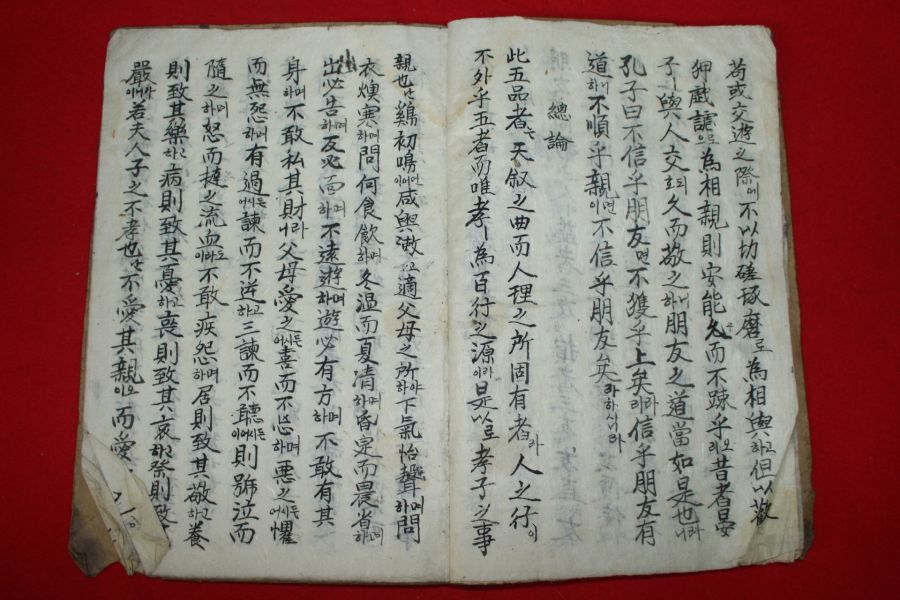 苟或交遊之際에不以切磋琢磨로爲相與하고但以歡
狎戲謔으로爲相親則安能久而不踈乎리오昔者晏
子ㅣ與人交호되久而敬之하니朋友之道當如是也니라
孔子曰不信乎朋友면不獲乎上矣리라信乎朋友有
道하니不順乎親이면不信乎朋友矣라하시니라
總論
此五品者는天叙之曲而人理之所固有者라人之行이
不外乎五者而唯孝ㅣ爲百行之源이라是以로孝子之事
親也는鷄初鳴이어든咸與漱고適父母之所하야下氣怡聲하며問
衣燠寒하며問何食飮하며冬溫而夏凊하며昏定而農省하며
出必告하며反必面하며不遠遊하며遊必有方하며不敢有其
身하며不敢私其財니라父母愛之어시든喜而不忘하며惡之어시든懼
而無怨하며有過어시든諫而不逆하고三諫而不聽이어시든則號泣而
隨之하며怒而撻之流血이라도不敢疾怨하며居則致其敬하고養
則致其樂하고病則致其憂하고喪則致其哀하고祭則致
嚴이니라若夫人子之不孝也는不愛其親이오而愛